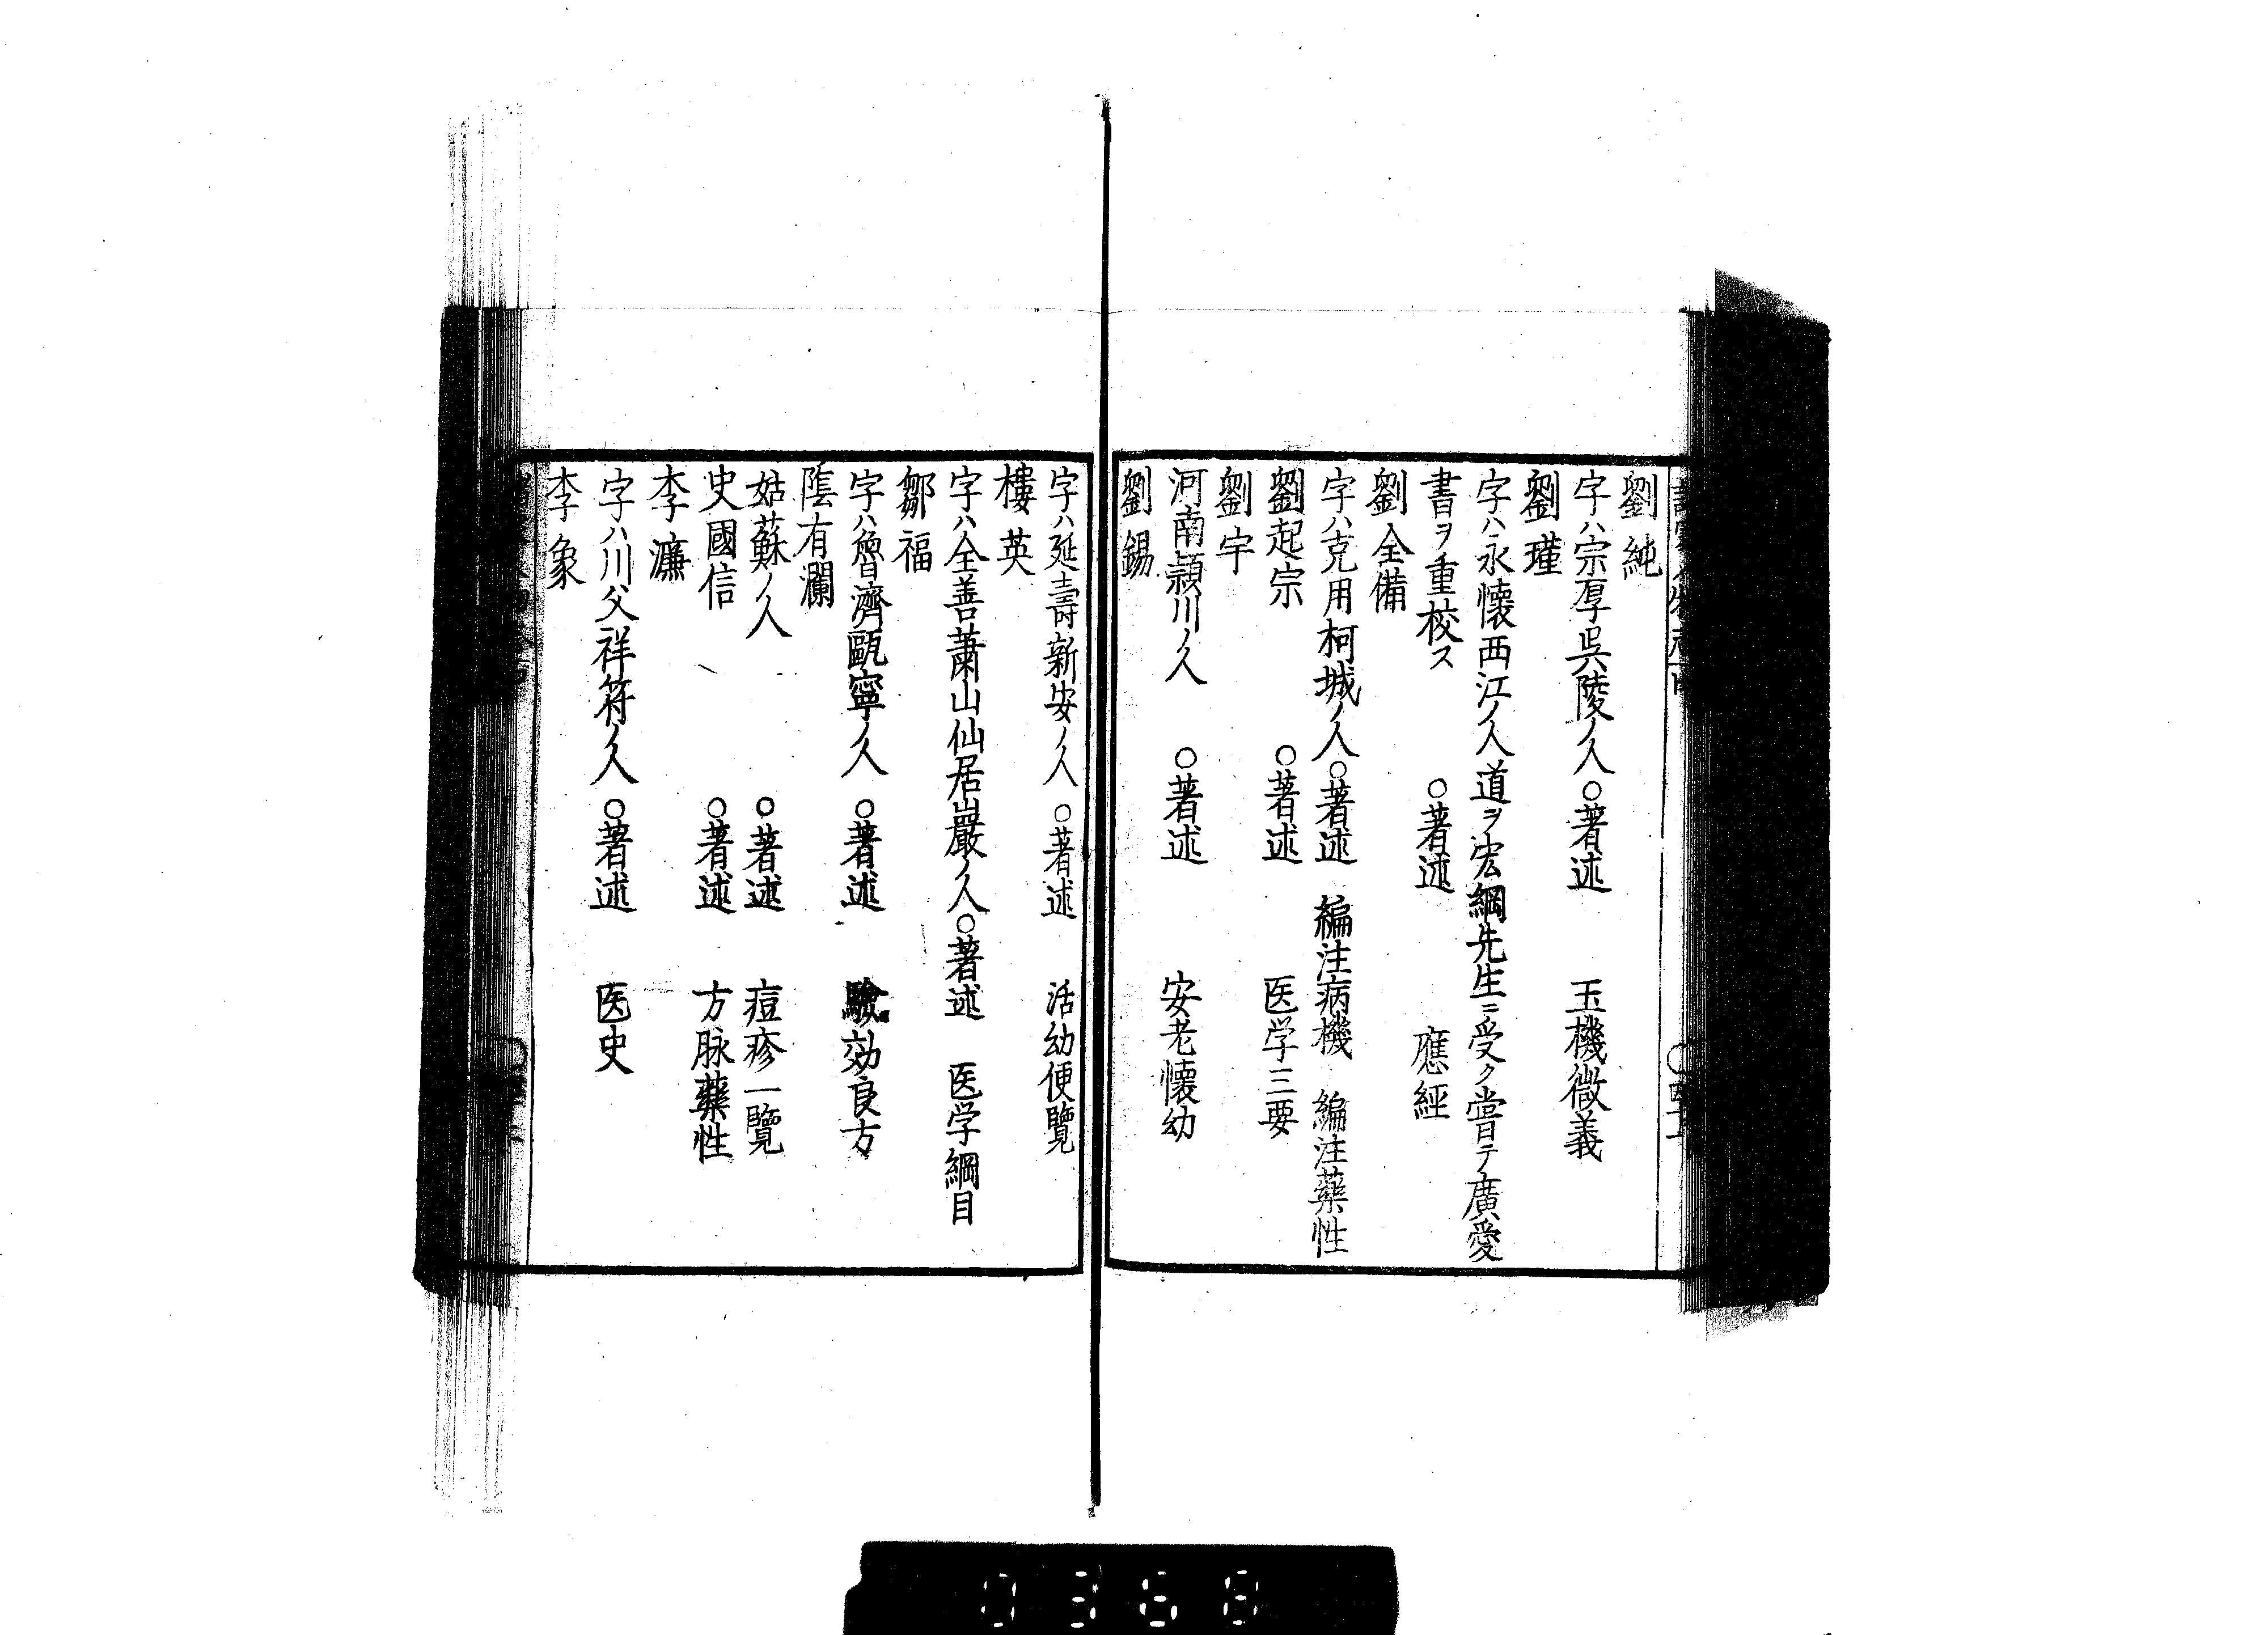 劉純
字ハ宗厚呉陵ノ人○著述　玉機微義
劉瑾
字ハ永懐西江ノ人道ヲ宏綱先生ニ受ク嘗テ廣愛
書ヲ重校ス　○著述　應經
劉全備
字ハ克用柯城ノ人○著述　編注病機　編注藥性
劉起宗　○著述　医学三要
劉宇
河南穎川ノ人　○著述　安老懐幼
劉錫
字ハ延壽新安ノ人○著述　活幼便覽
樓英
字ハ全善蕭山仙居巖ノ人○著述　医学綱目
鄒福
字ハ魯濟甌寧ノ人　○著述　驗効良方
蔭有瀾
姑蘇ノ人　○著述　痘疹一覽
史國信　○著述　方脉藥性
李濂
字ハ川父祥符ノ人○著述　医史
李象
0368